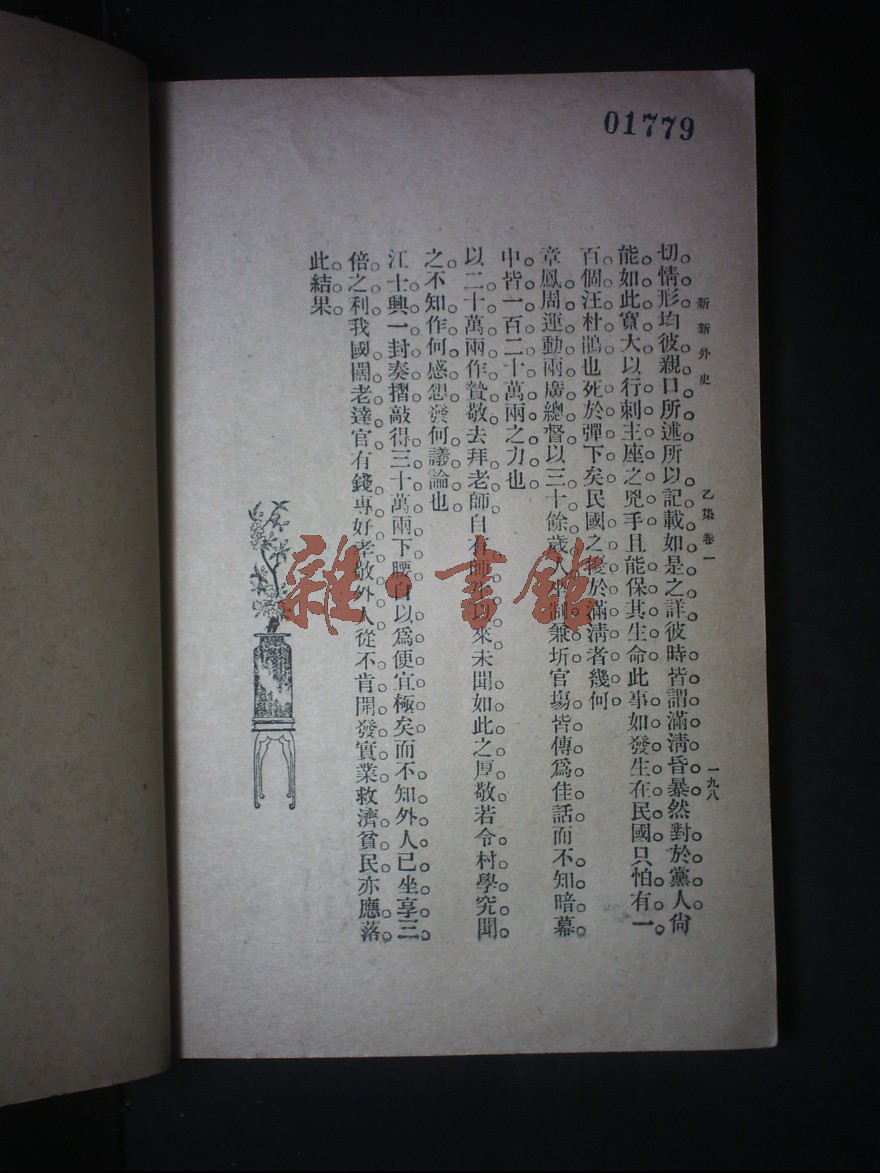 01779
新新外史 乙集 卷一 一九八
切情形均彼親口所述所以記載如是之詳彼時皆謂滿清昏暴然對於黨人尙
能如此寬大以行刺主座之兇手且能保其生命此事如發生在民國只怕有一
百個汪杜鵑也死於彈下矣民國之優於滿清者幾何
章鳳周運動兩廣總督以三十餘歲人 制兼圻官塲皆傳爲佳話而不知暗幕
中皆一百二十萬兩之力也
以二十萬兩作贄敬去拜老師自有師 以來未聞如此之厚敬若令村學究聞
之不知作何感想發何議論也
江士興一封奏摺敲得三十萬兩下腰自以爲便宜極矣而不知外人已坐享三
倍之利我國闊老達官有錢專好孝敬外人從不肯開發實業救濟貧民亦應落
此結果
雜·書館